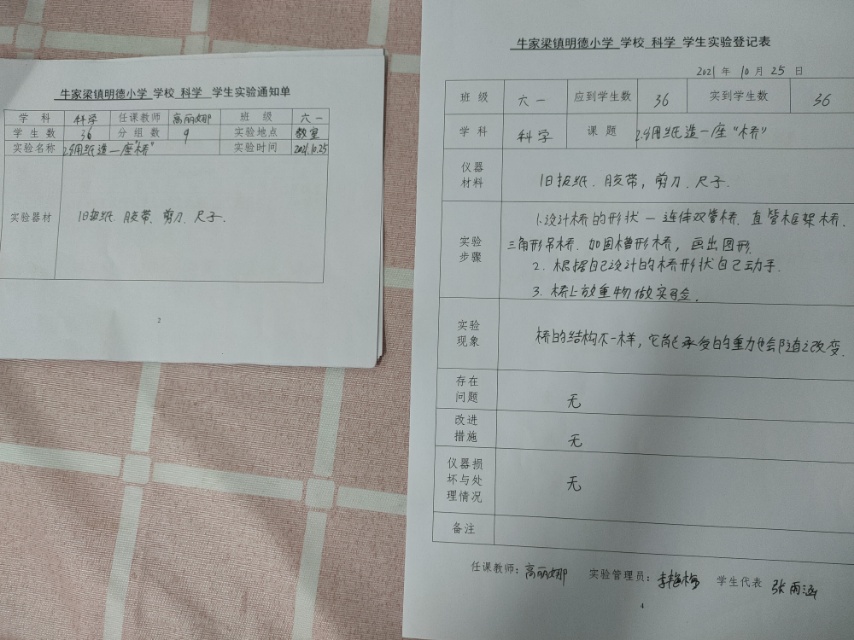 牛家梁镇明德小学 学校 科学 学生实验通知单
学 科 科学 任课教师 高丽娜 班 级 六一
学生数 36 分组数 9 实验地点 教室
实验名称 2.5用纸造一座"桥" 实验时间 2021.10.25
实验器材 旧报纸、胶带、剪刀、尺子.
2
牛家梁镇明德小学 学校 科学 学生实验登记表
2021 年 10 月 25 日
班 级 六一 应到学生数 36 实到学生数 36
学 科 科学 课 题 2.5用纸造一座"桥"
仪器
材料
旧报纸、胶带,剪刀、尺子.
实验
步骤
1.设计桥的形状 — 连体双管桥、直管框架桥、
三角形吊桥、加固槽形桥,画出图形.
2. 根据自己设计的桥形状自己动手.
3. 桥上放重物做实验.
实验
现象
桥的结构不一样,它能承受的重力也会随之改变.
存在
问题
无
改进
措施
无
仪器损
坏与处
理情况
无
备注
任课教师:高丽娜 实验管理员:李梅梅 学生代表 张雨涵
4